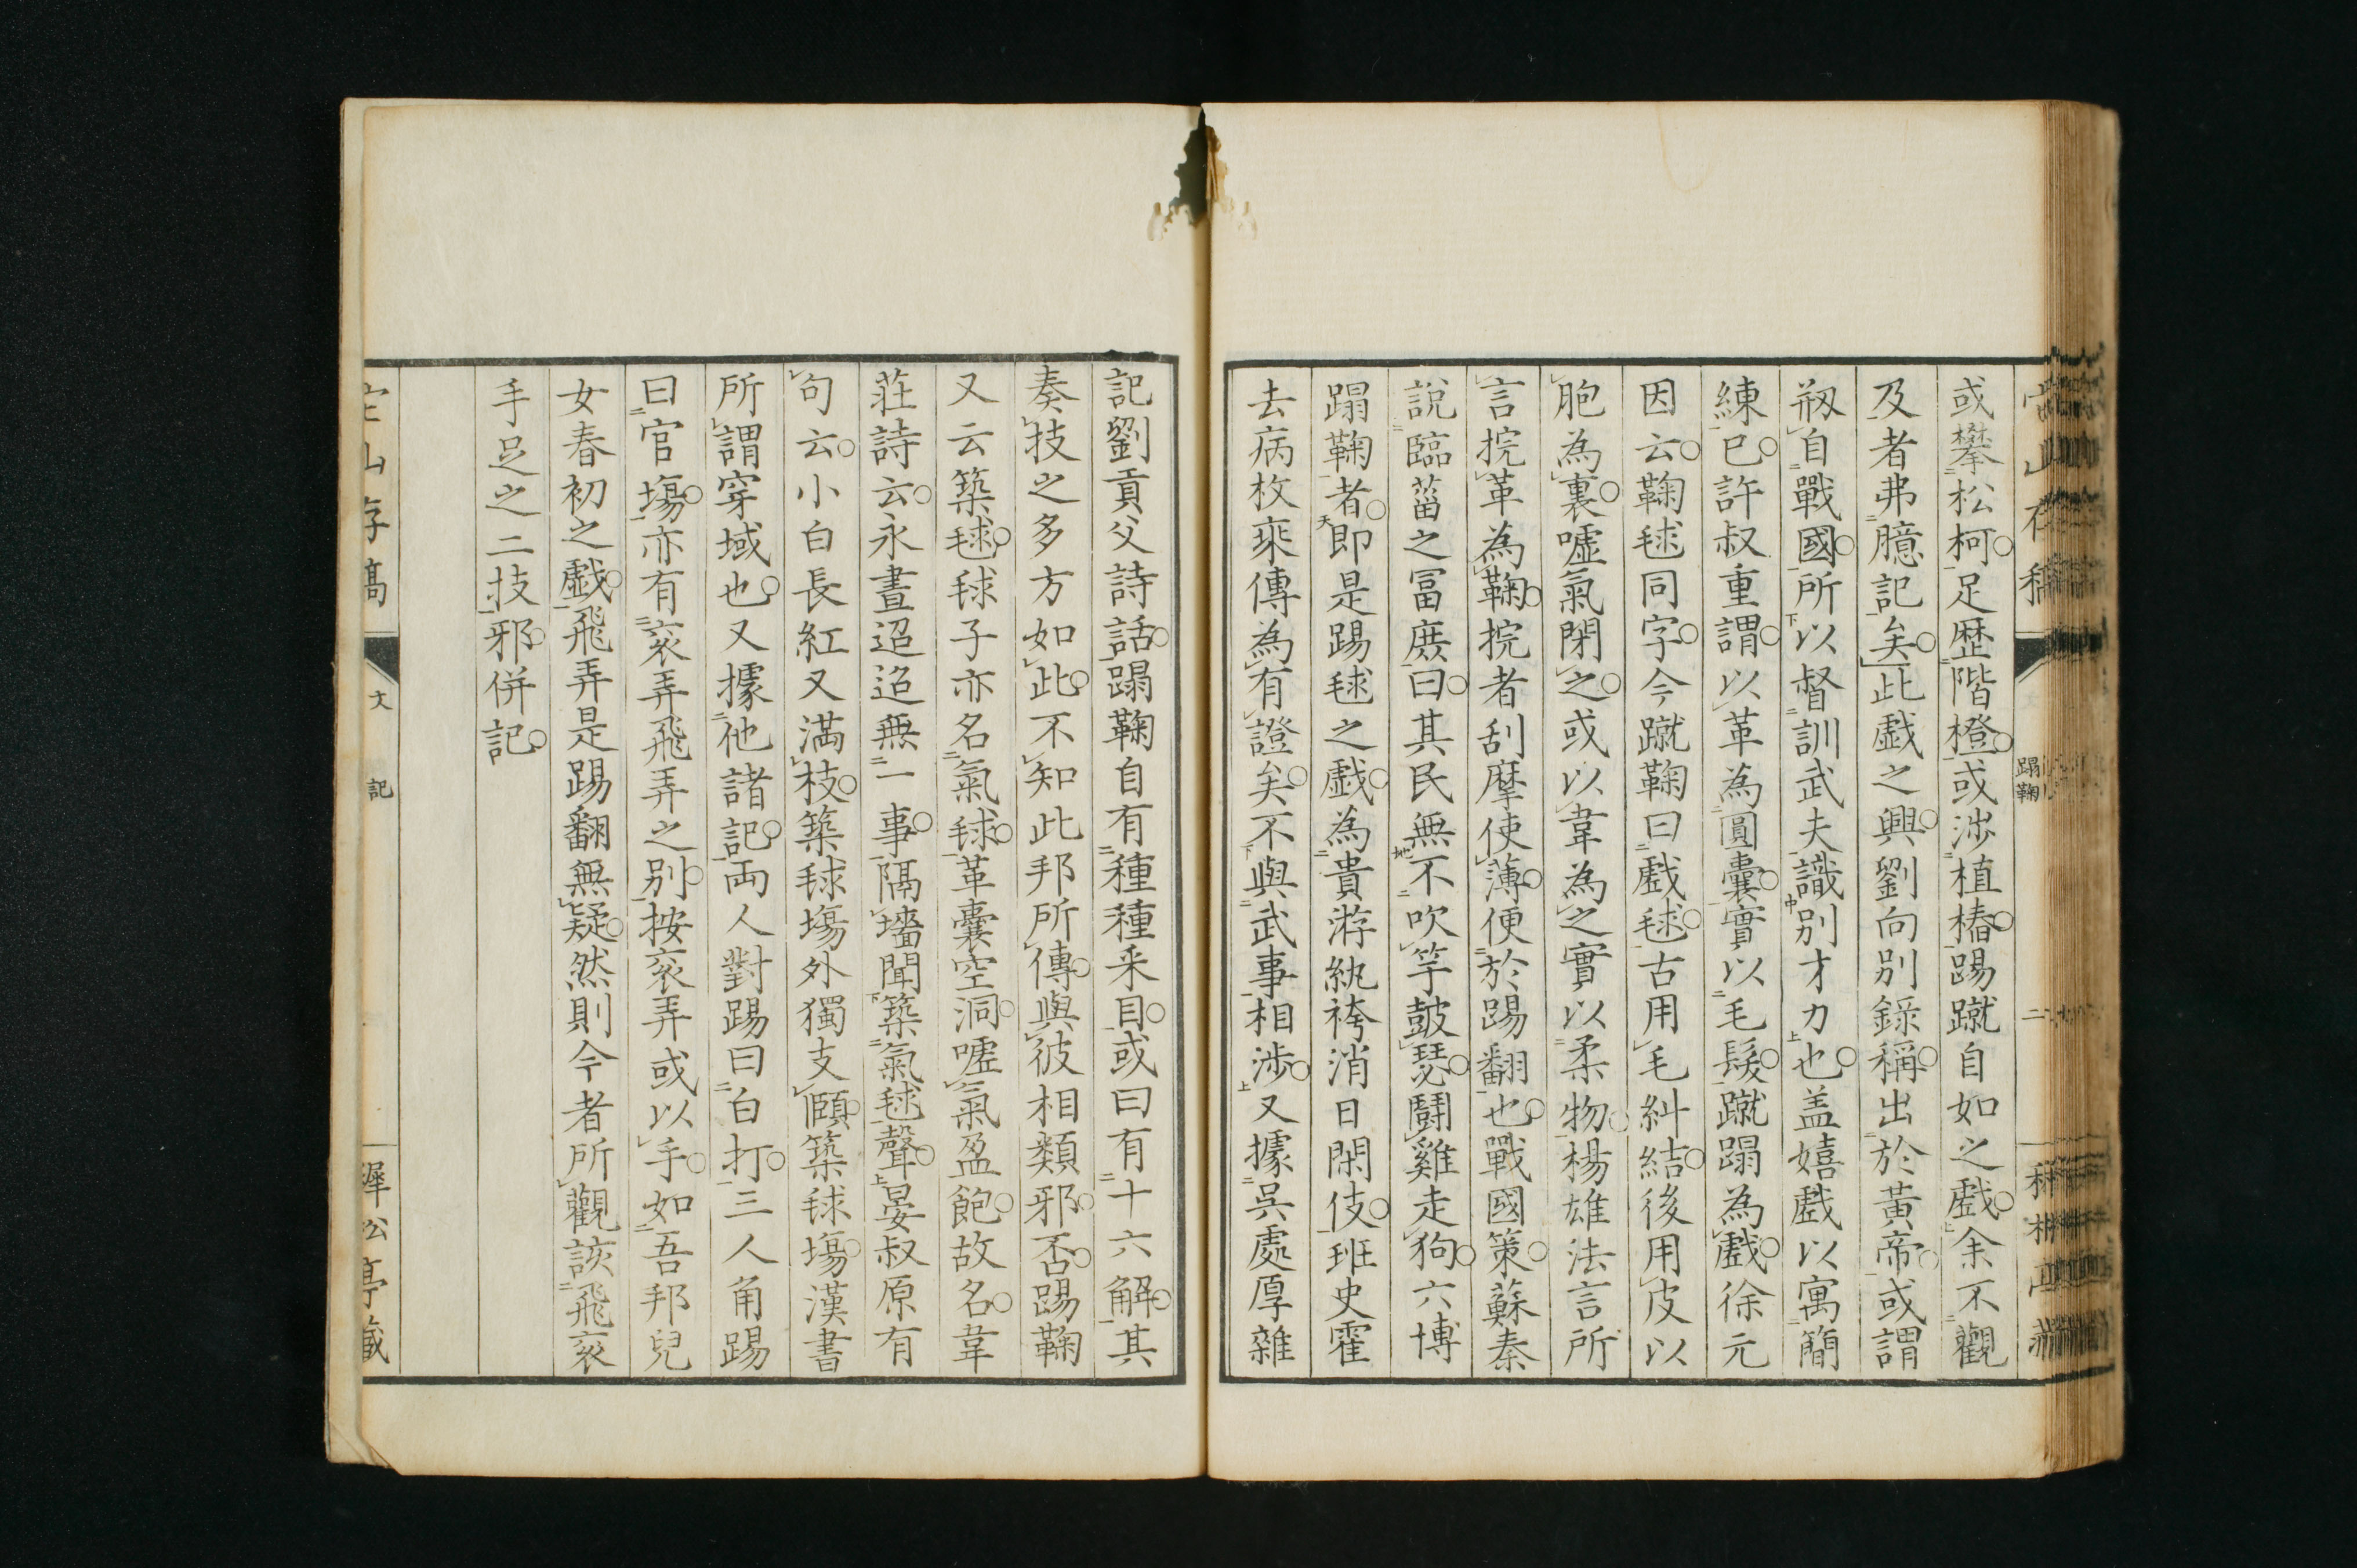 或攀松柯足歷階橙或涉植樁踢蹴自如之戲余不觀
及者弗臆記矣此戲之興劉向別錄稱出於黃帝或謂
剏自戰國所以督訓武夫識別才力也盖嬉戲以寓簡
練已許叔重謂以革為圓囊實以毛髮蹴蹋為戲徐元
因云鞠毬同字今蹴鞠曰戲毬古用毛糾結後用皮以
胞為裏噓氣閉之或以韋為之實以柔物楊雄法言所
言捖革為鞠捖者刮摩使薄便於踢翻也戰國策蘇秦
說臨菑之冨庶曰其民無不吹竽鼓瑟鬪雞走狗六博
蹋鞠者即是踢毬之戲為貴游紈袴消日閑伎班史霍
去病枚乘傳為有證矣不與武事相涉又據吳處厚雜
記劉貢父詩話蹋鞠自有種種釆目或曰有十六解其
奏技之多方如此不知此邦所傳與彼相類邪否踢鞠
又云築毬毬子亦名氣毬革囊空洞噓氣盈飽故名韋
莊詩云永晝迢迢無一事隔墻聞築氣毬聲晏叔原有
句云小白長紅又満枝築毬場外獨支頤築毬場漢書
所謂穿域也又據他諸記両人對踢曰白打三人角踢
曰官場亦有衮弄飛弄之別按衮弄或以手如吾邦兒
女春初之戲飛弄是踢翻無疑然則今者所觀該飛衮
手足之二技邪併記
文 記
蹋鞠